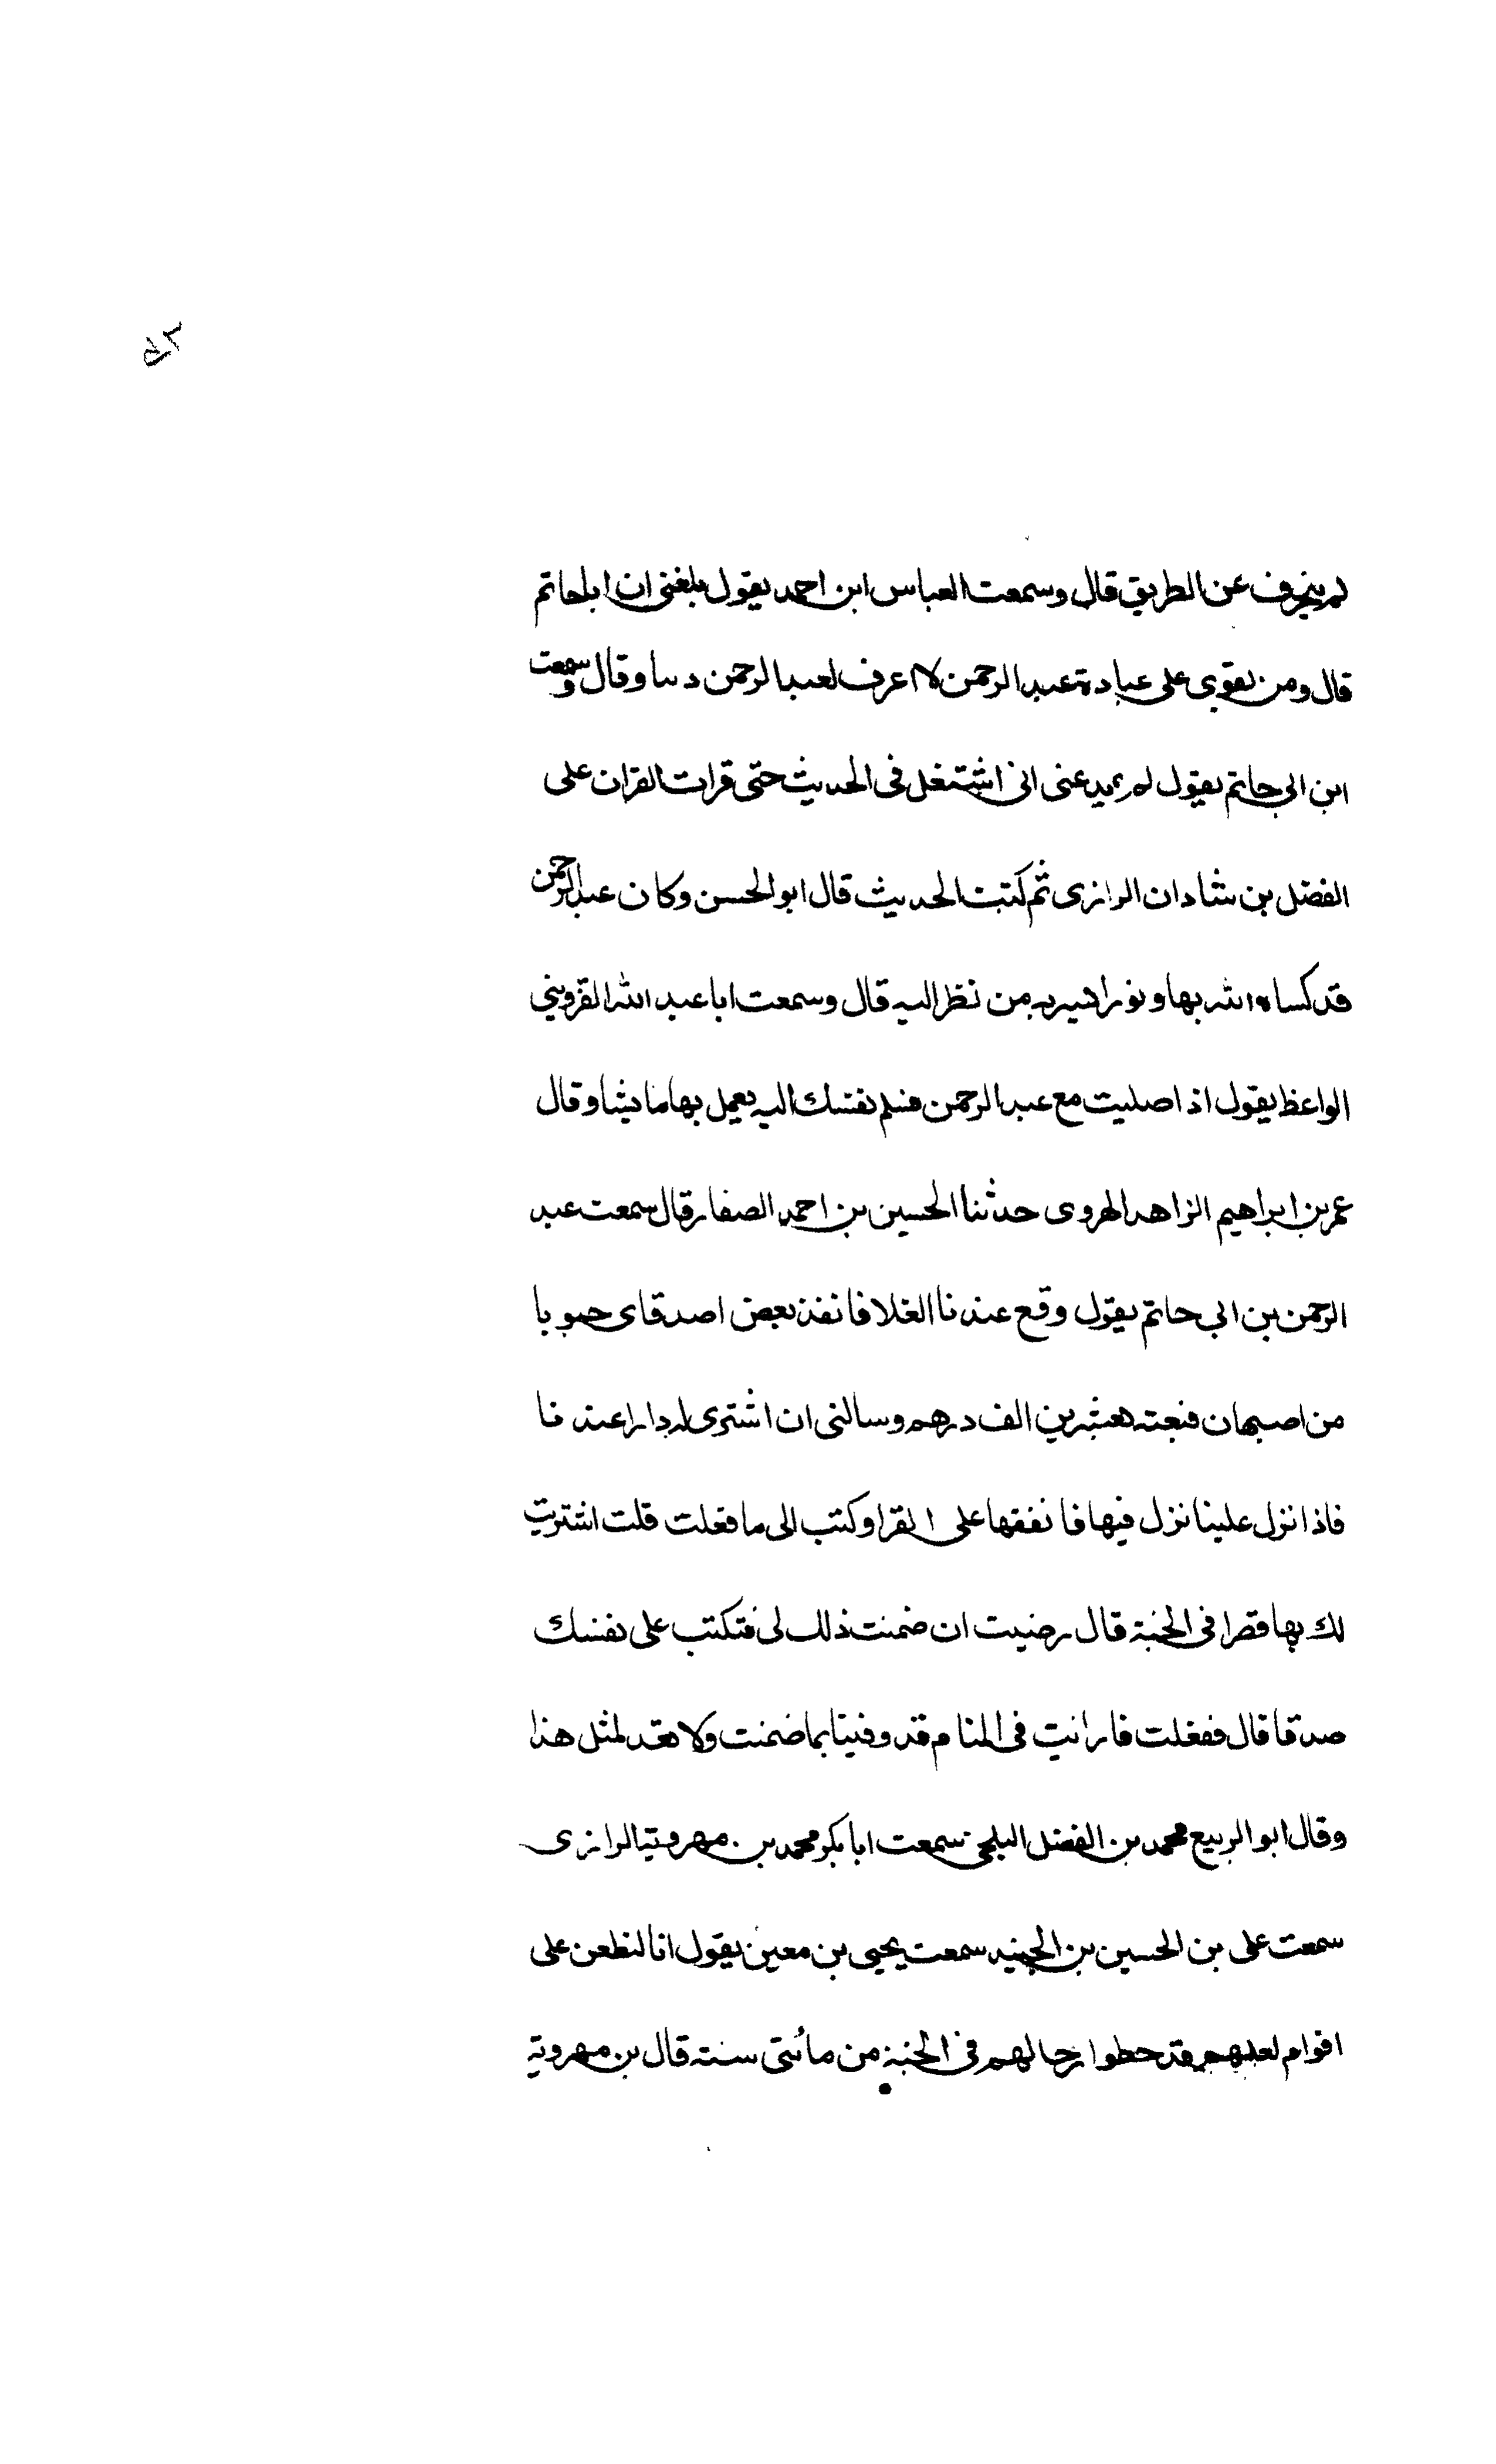 لم ينحرف عن الطريق قال وسمعت العباس ابن احمد يقول بلغني ان اباحاتم
قال ومن يقوى على عبادة عبد الرحمن لا اعرف لعبد الرحمن دنبا وقال وسمعت
ابن ابي حاتم يقول لم يدعني ابي اشتغل في الحديث حتى قرات القران على
الفضل بن شادان الرازي ثم كتبت الحديث قال ابو الحسن وكان عبد الرحمن
قد كساه الله بها ونورا يسر به من نظر اليه قال وسمعت ابا عبد الله القزويني
الواعظ يقول اذا صليت مع عبد الرحمن فسلم نفسك اليه يعمل بها ما يشا وقال
عمر بن ابراهيم الزاهد الهروى حدثنا الحسين بن احمد الصفار قال سمعت عبد
الرحمن بن ابي حاتم يقول وقع عندنا الغلا فانفذ بعض اصدقاى حبوبا
من اصبهان فبعته بعشرين الف درهم وسالني ان اشترى له دارا عندنا
فاذا نزل علينا نزل فيها فانفقها على الفقرا وكتب الى ما فعلت قلت اشتريت
لك بها قصرا في الجنة قال رضيت ان ضمنت ذلك لى فتكتب على نفسك
صدقا قال ففعلت فارانت في المنام قد وفينا بما ضمنت ولا تعد لمثل هذا
وقال ابو الربيع محمد بن الفضل البلخى سمعت ابا بكر محمد بن مهرويه الرازى
سمعت على بن الحسين بن الجنيد سمعت يحيى بن معين يقول انا لنطعن على
اقوام لعلهم قد حطوا رحالهم في الجنة من مائتى سنة قال بن مهروية